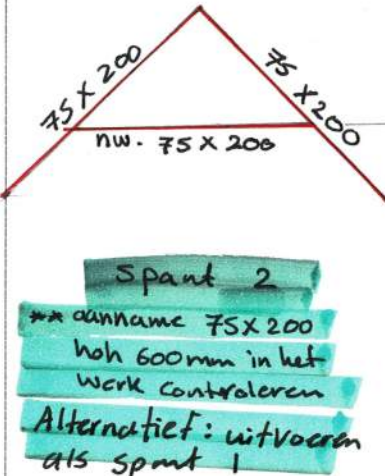 75 x 200
75 x 200
nw. 75 x 200
spant 2
** aanname 75x200
hoh 600mm in het
werk controleren
Alternatief: uitvoeren
als spant 1